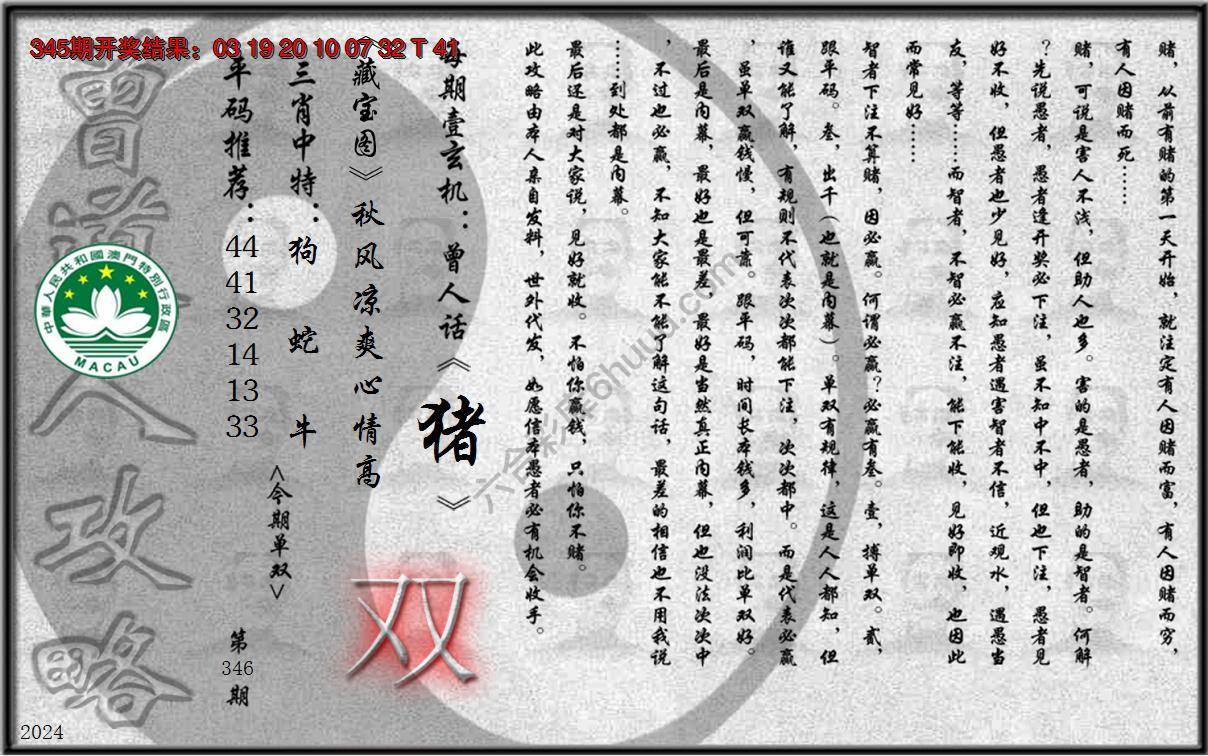 345期开奖结果：03 19 20 10 07 32 T 41
赌，从前有赌的第一天开始，就注定有人因赌而富，有人因赌而穷，
有人因赌而死……
赌，可说是害人不浅，但助人也多。害的是愚者，助的是智者。何解
？先说愚者，愚者逢开奖必下注，虽不知中不中，但也下注，愚者见
好不收，但愚者也少见好，应知愚者遇害智者不信，近观水，遇愚当
友，等等……而智者，不智必赢不注，能下能收，见好即收，也因此
而常见好……
智者下注不算赌，因必赢。何谓必赢？必赢有叁。壹，搏单双。贰，
跟平码。叁，出千（也就是内幕）。单双有规律，这是人人都知，但
谁又能了解，有规则不代表次次都能下注，次次都中。而是代表必赢
，虽单双赢钱慢，但可靠。跟平码，时间长本钱多，利润比单双好。
最后是内幕，最好也是最差，最好是当然真正内幕，但也没法次次中
，不过也必赢，不知大家能不能了解这句话，最差的相信也不用我说
……到处都是内幕。
最后还是对大家说，见好就收。不怕你赢钱，只怕你不赌。
此攻略由本人亲自发料，世外代发，如愿信本愚者必有机会收手。
每期壹玄机：曾人话《猪》
《藏宝图》秋风凉爽心情高
双
三肖中特：狗 蛇 牛
<今期单双>
平码推荐：44 41 32 14 13 33
第346期
曾道人攻略
中華人民共和國澳門特別行政區
MACAU
2024